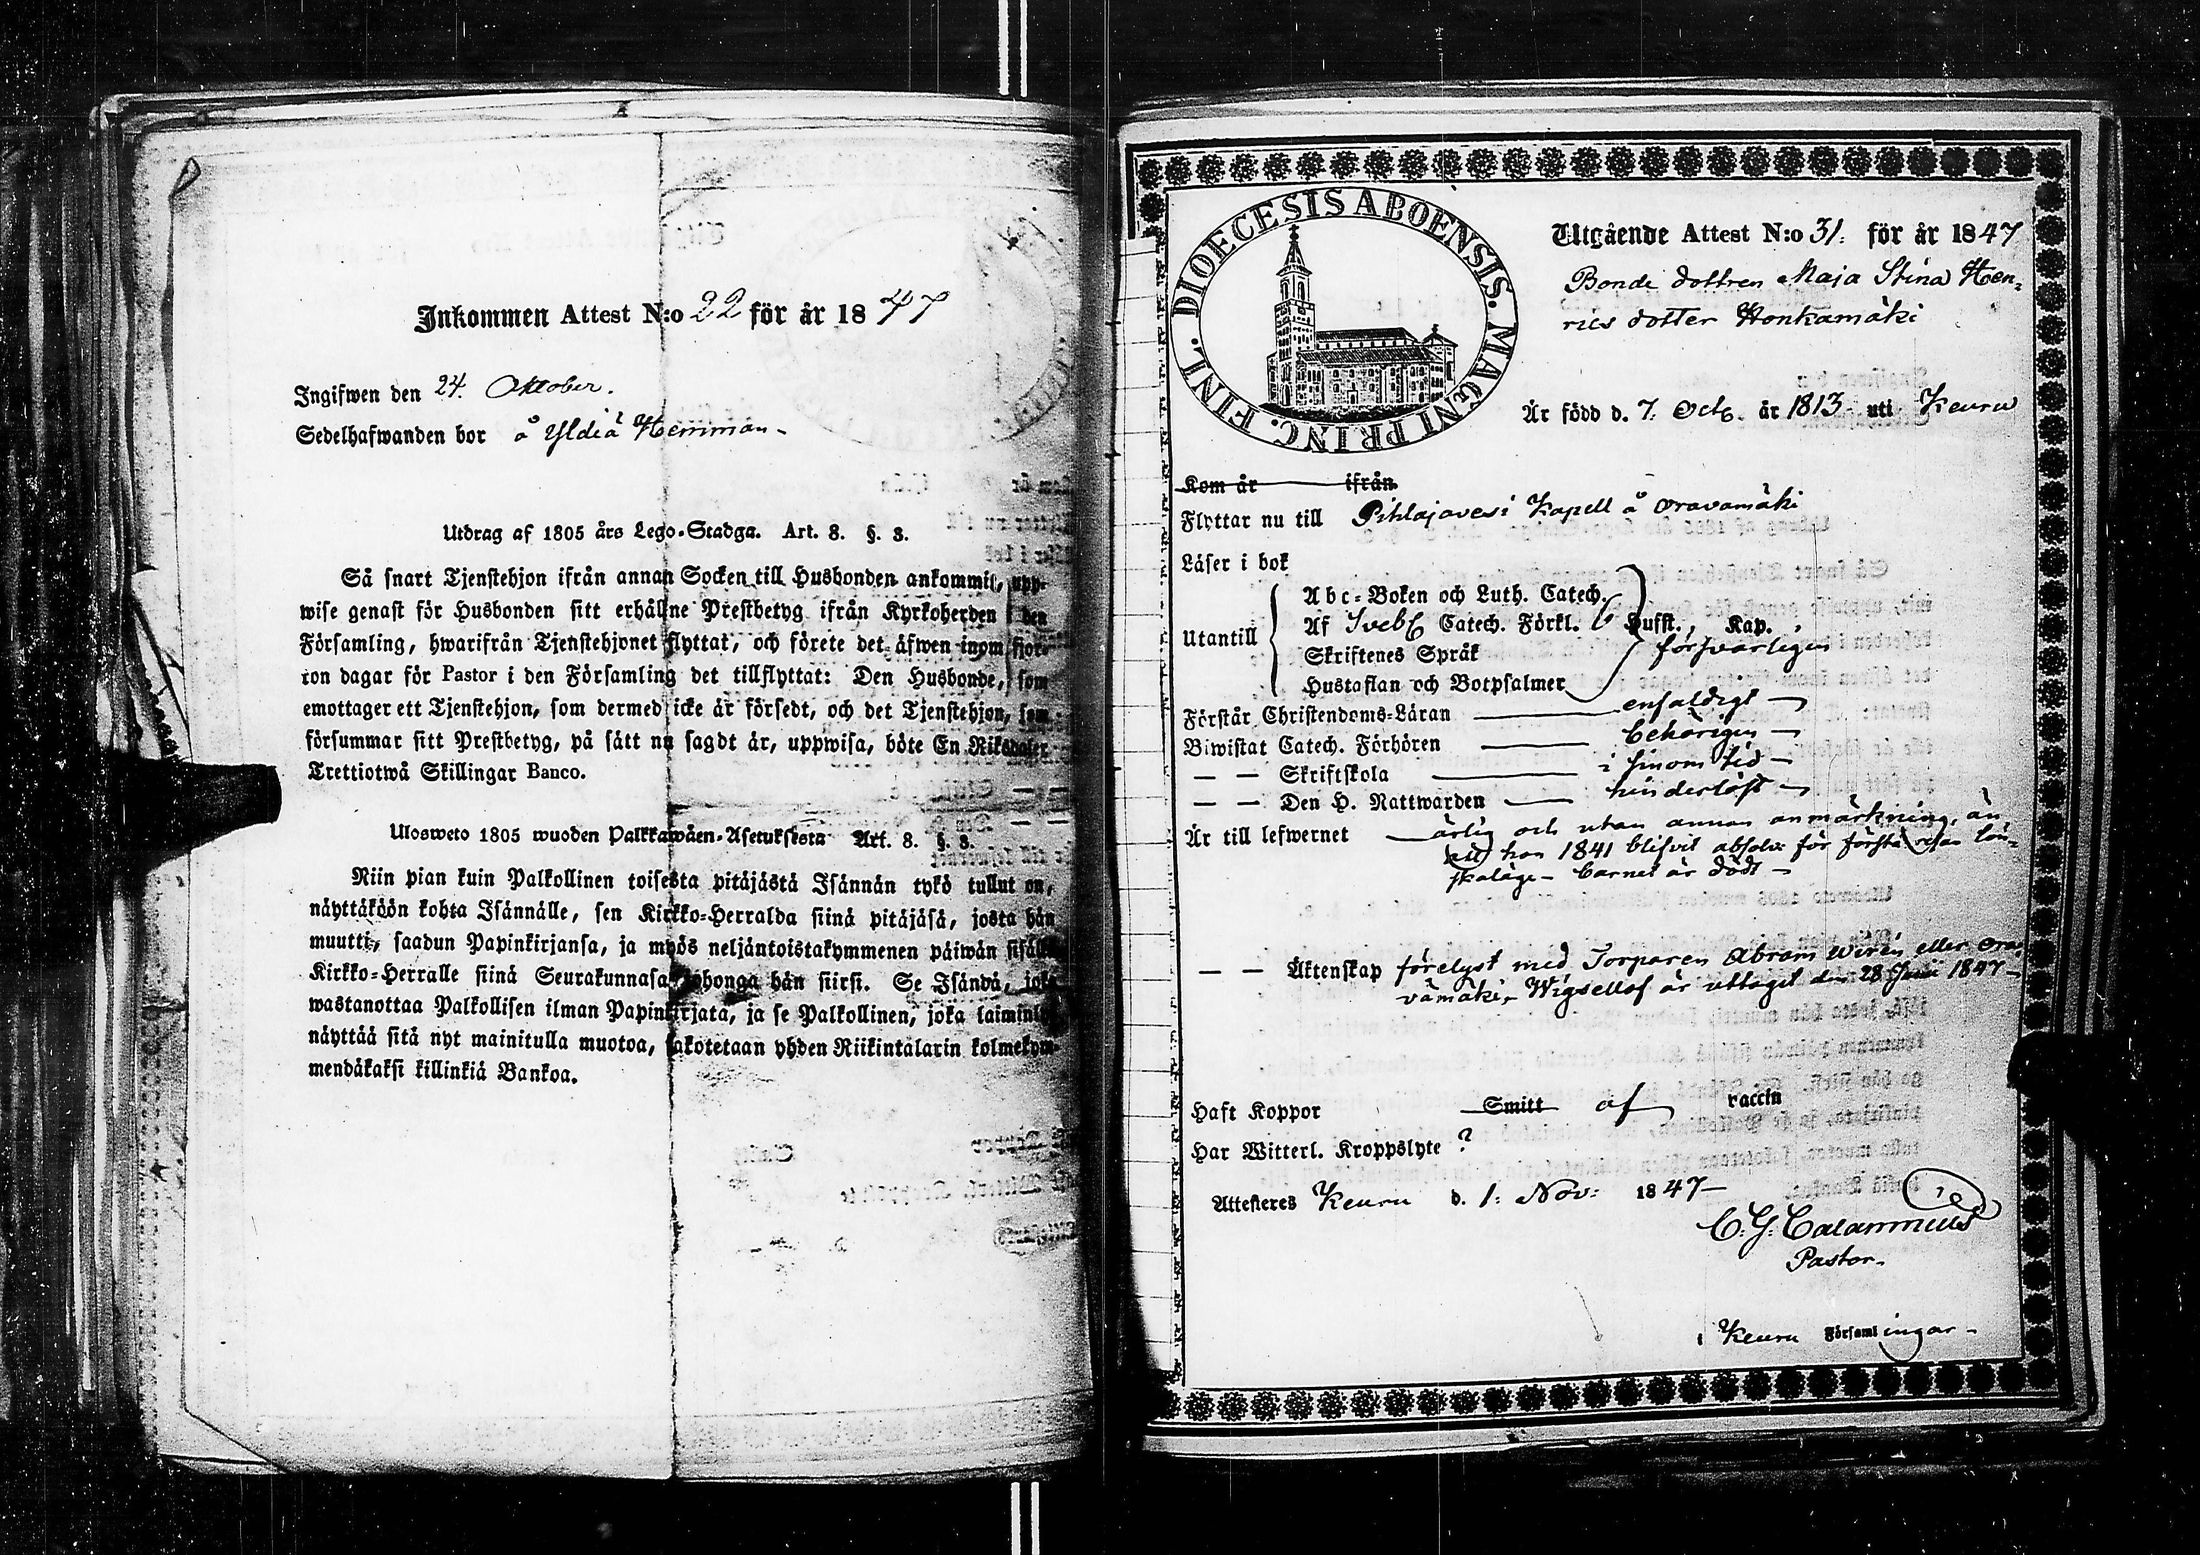 Inkommen Attest N:o 22 för år 1847
Ingifwen den 24. Oktober.
Sedelhafwanden bor å Yldiä Hemman
Utdrag af 1805 års Lego-Stadga. Art. 8. §. 3.
Så snart Tjenstehjon ifrån annan Socken till Husbonden ankommit, upp-
wise genast för Husbonden sitt erhållne Prestbetyg ifrån Kyrkoherden i den
Församling, hwarifrån Tjenstehjonet flyttat, och förete det äfwen inom fjor-
ton dagar för Pastor i den Församling det tillflyttat: Den Husbonde, som
emottager ett Tjenstehjon, som dermed icke är försedt, och det Tjenstehjon, som
försummar sitt Prestbetyg, på sätt nu sagdt är, uppwisa, böte En Riksdaler
Trettiotwå Skillingar Banco.
Ulosweto 1805 wuoden Palkkawäen-Asetuksesta Art. 8. §. 3.
Niin pian kuin Palkollinen toisesta pitäjästä Isännän tykö tullut on,
näyttäköön kohta Isännälle, sen Kirkko-Herralda siinä pitäjäsä, josta hän
muutti, saadun Papinkirjansa, ja myös neljäntoistakymmenen päiwän sisällä
Kirkko-Herralle siinä Seurakunnasa johonga hän siirsi. Se Isändä, joka
wastanottaa Palkollisen ilman Papinkirjata, ja se Palkollinen, joka laiminlyö
näyttää sitä nyt mainitulla muotoa, sakotetaan yhden Riikintalarin kolmekym-
mendäkaksi killinkiä Bankoa.
DIOECESIS ABOENSIS. MAGNI PRINC. FINL.
Utgående Attest N:o 31. för år 1847
Bonde dottren Maja Stina Hen-
rics dotter Honkamäki
Är född d. 7. Octb. år 1813 uti Keuru
Kom år ifrån
Flyttar nu till Pihlajavesi Kapell å Oravamäki
Läser i bok
Abc-Boken och Luth. Catech.
Utantill Af Sveb. Catech. Förkl. Hufst., Kap.
Skriftenes Språk försvarligen
Hustaflan och Botpsalmer
Förstår Christendoms-Läran enfaldigt
Biwistat Catech. Förhören behörigen
— — Skriftskola i sinom tid
— — Den H. Nattwarden hinderlöst
Är till lefwernet ärlig och utan annan anmärkning, än
att hon 1841 blifvit absolv: för första resan lön-
skaläge - barnet är dödt
— — Äktenskap förelyst med Torparen Abram Wirén eller Ora-
vamäki, Wigsellof är uttaget den 28 Junii 1847
Haft Koppor Smitt af vaccin
Har Witterl. Kroppslyte ?
Attesteres Keuru d. 1. Nov: 1847
C. G. Calamnius
Pastor
i Keuru Församlingar